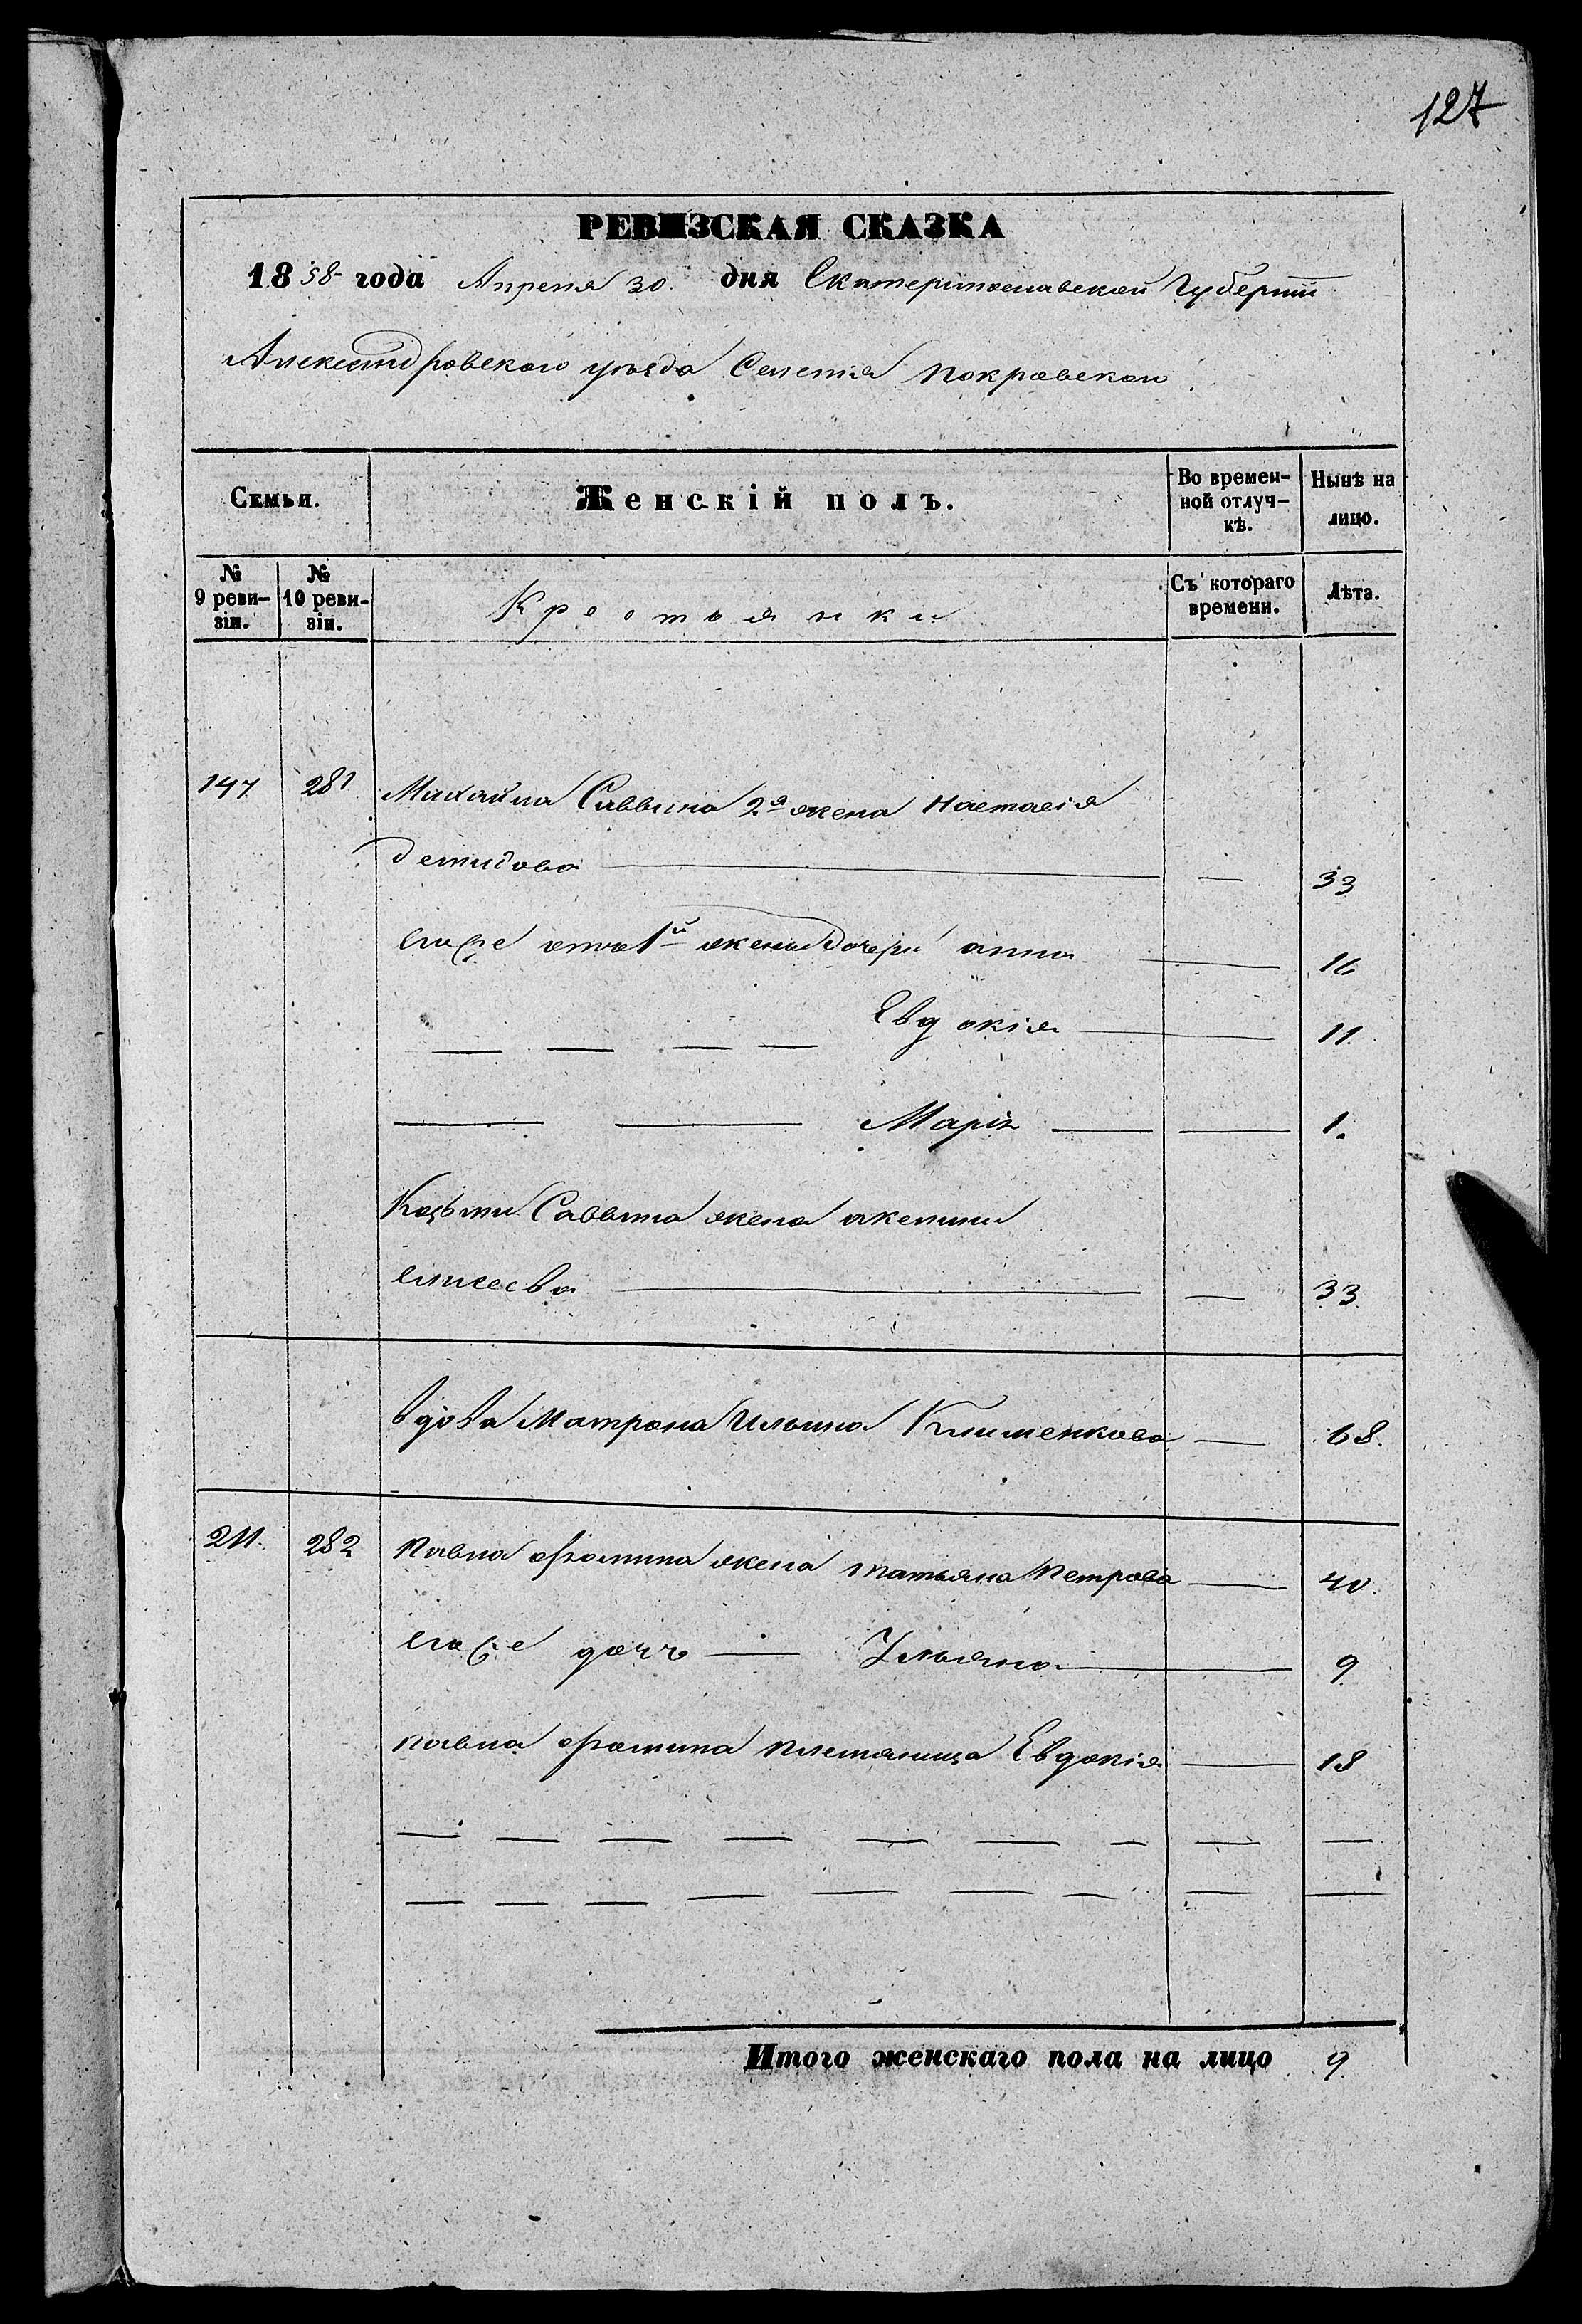 127
РЕВИЗСКАЯ СКАЗКА
1858 года Апреля 30. дня Екатеринославской Губернии
Александровского уезда Селенія Покровскаго
Семьи. Женскій полъ. Во времен-ной отлуч-кѣ. Нынѣ на лицо.
№ 9 реви-зіи. № 10 реви-зіи. Крестьянки Съ котораго времени. Лѣта.
147 281 Михайла Саввина 2я жена Настасія
Демидова — 33
его же отъ 1й жены дочери анна — 16
— — — — Евдокія — 11
— — Марія — — 1.
Козьми Саввина жена
Елисеева — — 33
вдова Матрона Ильина Клименкова — 68.
211. 282 Павла Фомина жена татьяна Петрова — 40.
его же дочь — Ульяна — 9
Павла Фомина племяница Евдокія — 18
— — — — — — — — —
— — — — — — — — —
Итого женскаго пола на лицо 9.